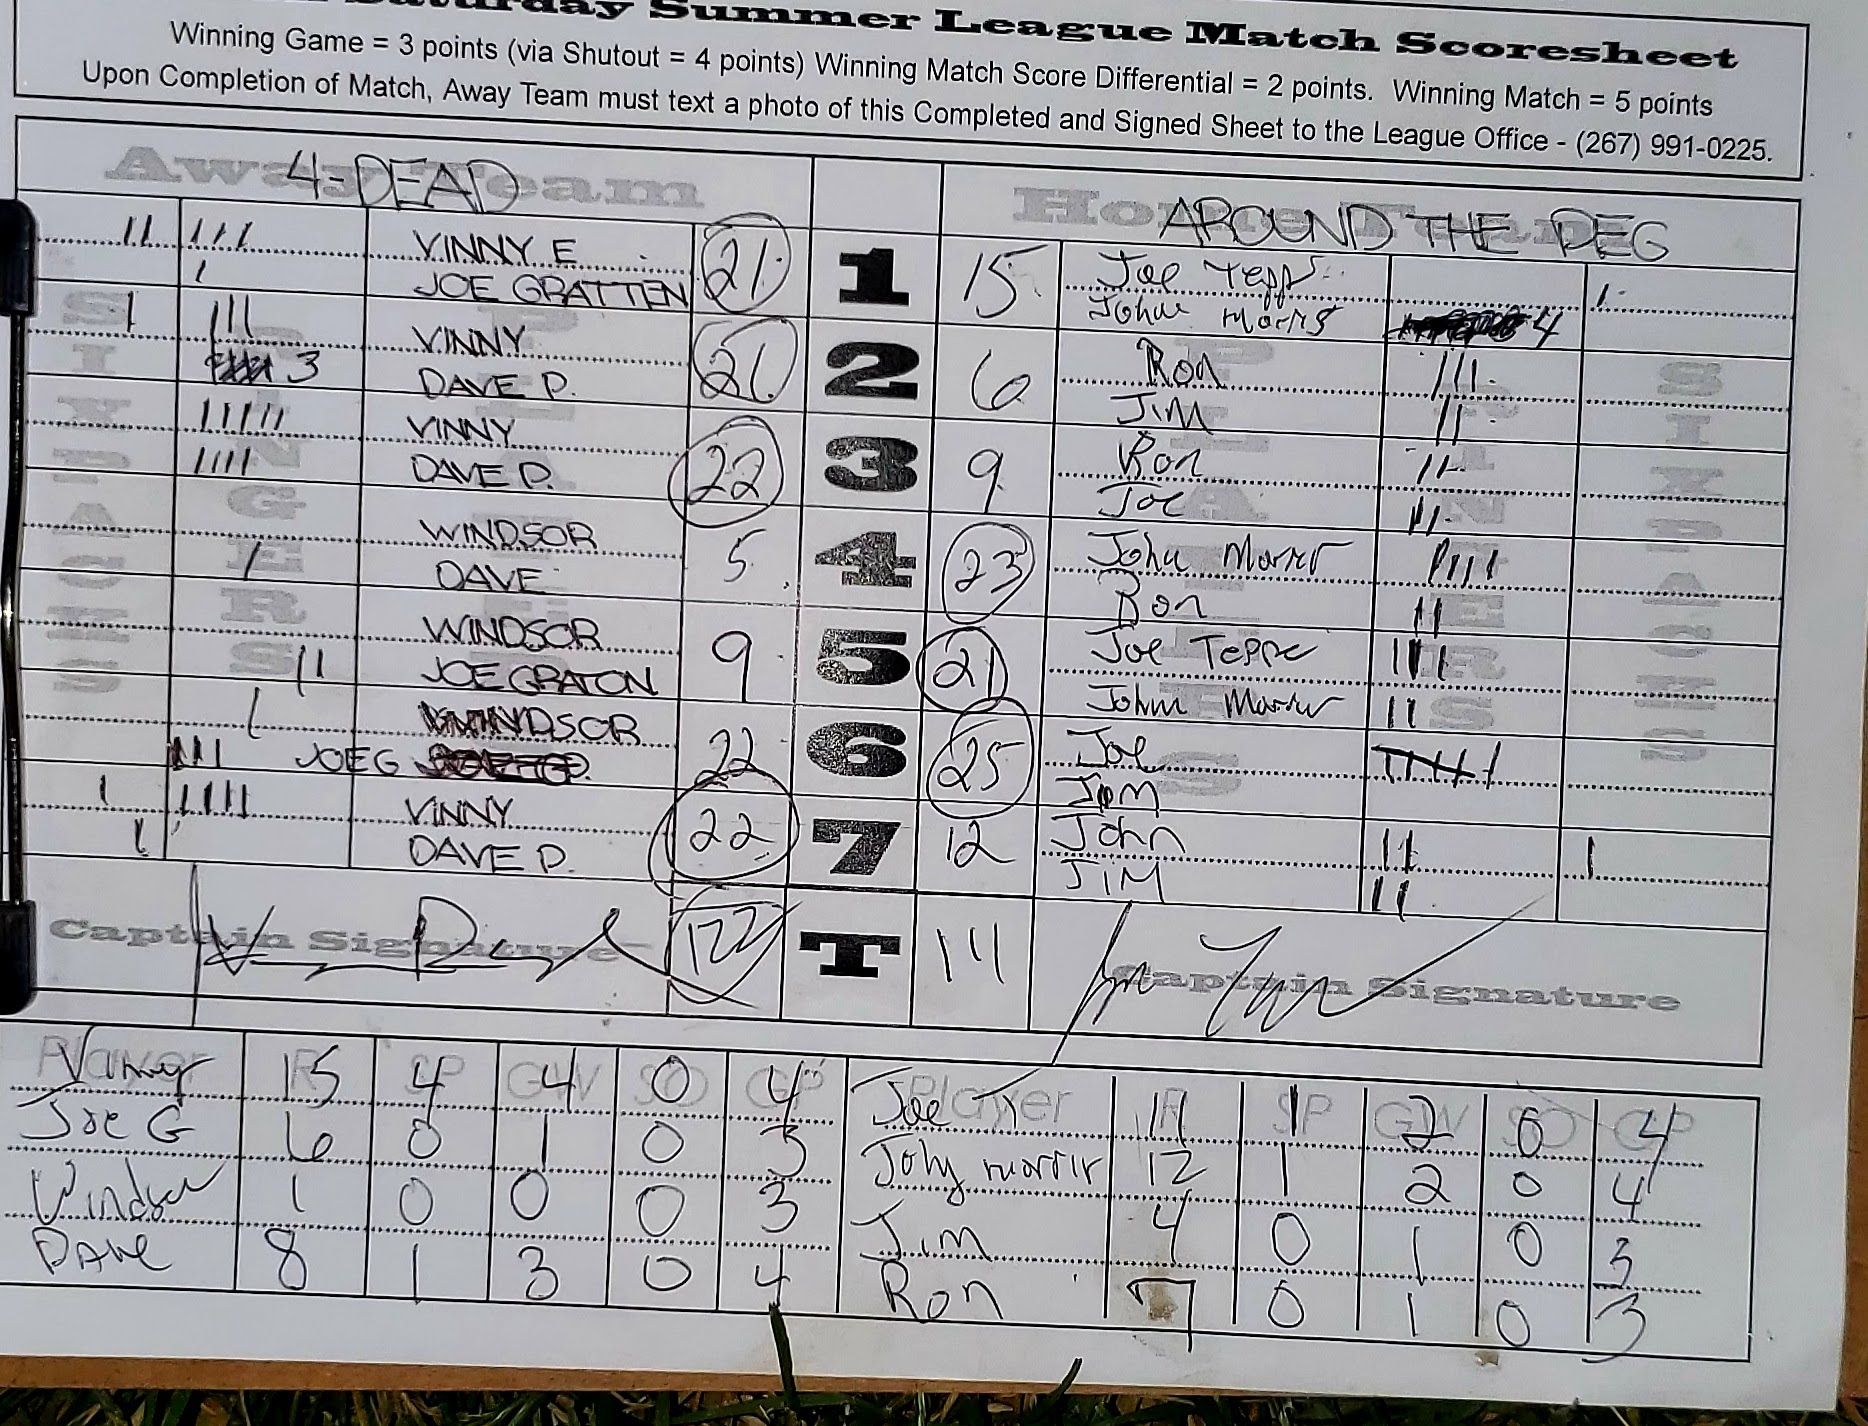 Saturday Summer League Match Scoresheet
Winning Game = 3 points (via Shutout = 4 points) Winning Match Score Differential = 2 points. Winning Match = 5 points
Upon Completion of Match, Away Team must text a photo of this Completed and Signed Sheet to the League Office - (267) 991-0225.
Away Team 4-DEAD Home Team AROUND THE PEG
VINNY E 21 1 15 Joe
JOE GRATTEN 4
VINNY 21 2 6 Ron
3 DAVE P. Jim
VINNY 22 3 9 Ron
DAVE P. Joe
WINDSOR 5 4 23 John
DAVE Ron
WINDSOR 9 5 21 Joe Teppe
JOE GRATON John
WINDSOR 22 6 25 Joe
JOE G Jim
VINNY 22 7 12 John
DAVE P. Jim
SIXPACKS RINGERS SIXPACKS
Captain Signature 122 T 111 Captain Signature
Player IR SP GW SO GP Player IR SP GW SO GP
Vinny 15 4 4 0 4 Joe T 11 1 2 0 4
Joe G 6 0 1 0 3 12 1 2 0 4
Windsor 1 0 0 0 3 Jim 4 0 1 0 3
Dave 8 1 3 0 4 Ron 7 0 1 0 3